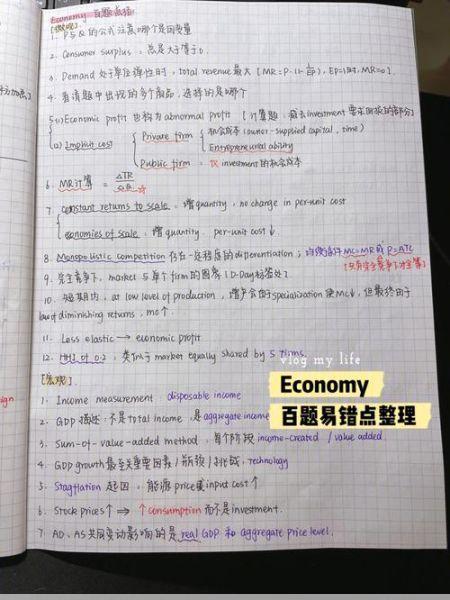 Economy 百题总结
[微观]
1. P与Q的公式注意哪个是因变量
2. Consumer surplus, 总是大于等于0.
3. Demand 处于单位弹性时, total revenue 最大 [MR=P·(1-1/EP), EP=1时, MR=0].
4. 看清题中出现的多个商品, 选择的是哪个
5. (1) Economic profit 也称为 abnormal profit [计算题, 减去investment 要求回报的部分]
(2) Implicit cost { Private firm { 机会成本 (owner-supplied capital, time)
Entrepreneurial ability
Public firm = investment的机会成本
6. MR计算 = ΔTR/ΔQ
7. { constant returns to scale, 增quantity, no change in per-unit cost
economies of scale, 增quantity, per-unit cost↓.
8. Monopolistic competition 存在一定程度的differentiation; MC=MR P=ATC
[只有完全竞争下才全等]
9. 完全竞争下, market 与单个firm的图像 (D-Day标签处)
10. 短期内, at low level of production, 增产会由于specialization 使MC↓, 但最终由于
law of diminishing returns, MC↑.
11. Less elastic → economic profit
12. HHI of 0.2, 类似于 market equally shared by 5 firms.
[宏观]
1. Income measurement disposable income
2. GDP描述, 不是total income, 是aggregate income
3. Sum-of-value-added method, 每个阶段 income-created / value added
4. GDP growth 最至关重要因素/ /挑战, technology
5. Stagflation 起因, 能源price input cost↑
6. Stock prices↑ → ↑consumption 而不是investment.
7. AD、AS共同变动影响的是 real GDP 和 aggregate price level.
vlog my life
Economy
百题易错点整理